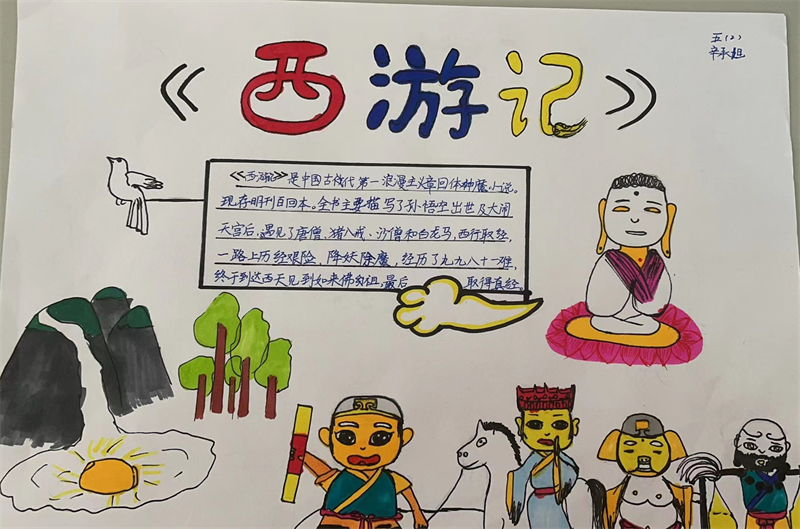 《西游记》
五(2)
辛承姐
《西游记》是中国古代第一浪漫主义章回体神魔小说。
现存明刊百回本。全书主要描写了孙悟空出世及大闹
天宫后,遇见了唐僧、猪八戒、沙僧和白龙马,西行取经,
一路上历经艰险、降妖除魔,经历了九九八十一难,
终于到达西天见到如来佛祖,最后取得真经。